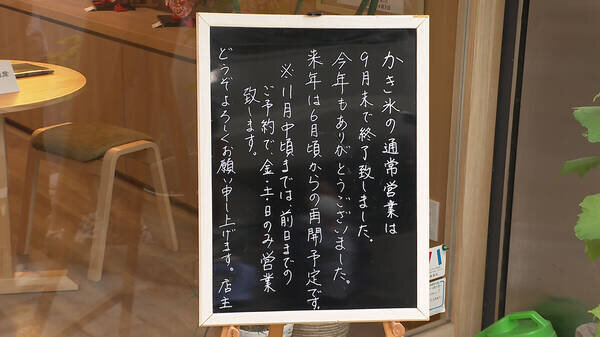 かき氷の通常営業は
9月末で終了致しました。
今年もありがとうございました。
来年は6月頃からの再開予定です。
※11月中頃までは、前日までの
ご予約で、金・土・日のみ営業
致します。
どうぞよろしくお願い申し上げます。店主